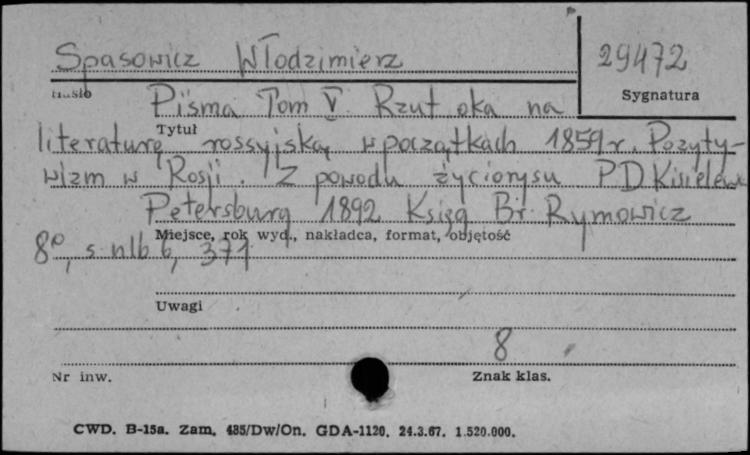 Spasowicz Włodzimierz
29472
Hasło
Sygnatura
Pisma Tom V. Rzut oka na
Tytuł
literaturę rossyjską w początkach 1859 r. Pozyty-
wizm w Rosji. Z powodu życiorysu P D Kisielew
Petersburg 1892 Księg Br. Rymowicz
Miejsce, rok wyd., nakładca, format, objętość
8°, s nlb 6, 371
Uwagi
8
Nr inw.
Znak klas.
CWD. B-15a. Zam. 485/Dw/On. GDA-1120. 24.3.67. 1.520.000.